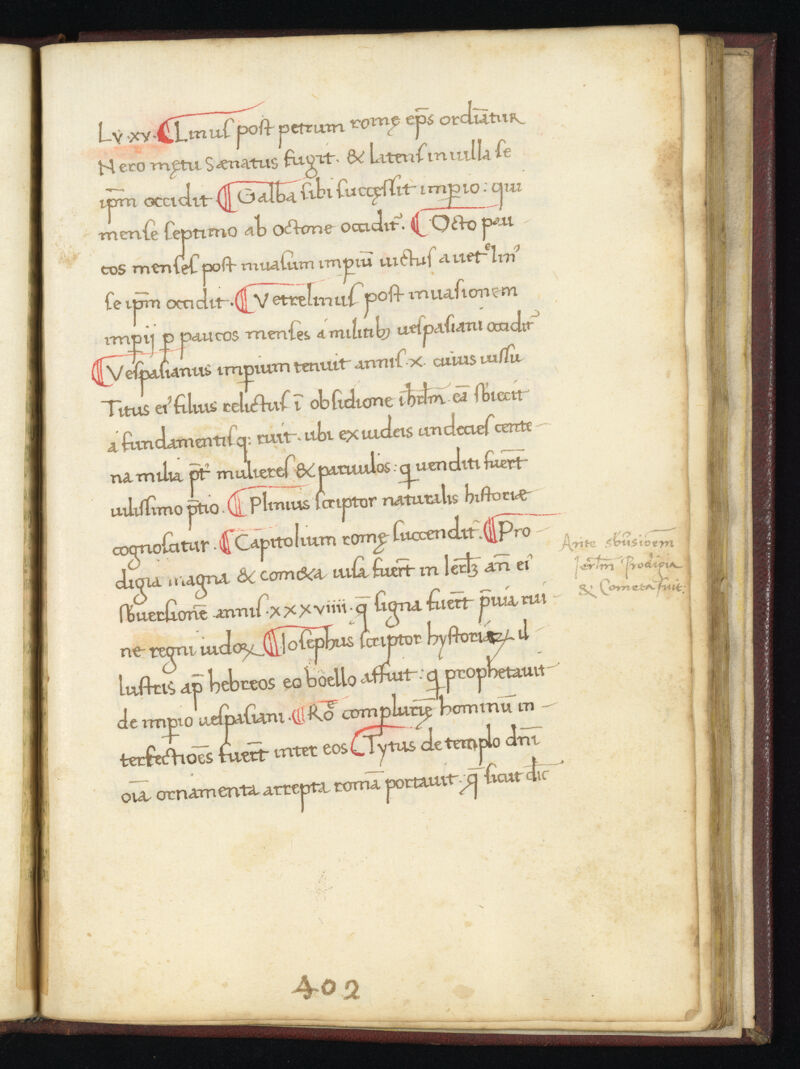 Lv. xv. ¶ Linus post petrum romę ep̄s ordīatur
Nero mętu Sænatus fugit. & latens in uilla se
ip̄m occidit ¶ Galba sibi succęssit imperio: qui
mense septimo ab octone occidit᷒. ¶ Octo pau
cos menses post inuasum imperiū uictus a uetelin᷒
se ip̄m occidit. ¶ Vetrelinus post inuasionem
imperij p paucos menses a militib; uespasiani occidit᷒
¶ Vespasianus imperium tenuit annis. x. cuius iussu
Titus ei᷒ filius relictus ī obsidione ihrl̄m. eā sbiecit
a fundamentisq; ruit. ubi ex iudeis undecies cente-
na milia p̄t᷒ mulieres & paruulos: q uenditi fuerт̄
uilissimo p̄tio. ¶ Plinius scriptor naturalis historię
cognoscitur. ¶ Capitolium romę succendit᷒. ¶ Pro-
digia magna & cometa uisa fuerт̄ in Ierl̄ꝫ an̄ ei᷒
sbuersionē annis. xxxviiii. q̄ signa fuerт̄ p̄uia rui-
ne regni iudoꝝ ¶ Iosephus scriptor hystoriaꝝ il-
lustris ap̄ hebreos eo bōello affuit: q prophetauit
de imperio uespasiani. ¶ Ro᷒ę complurię hominū in-
terfectiōes fuerт̄ inter eos ¶ Tytus de templo dn̄i
oīa ornamenta arrepta romā portauit. q̄ sicut dic̄
Ante sbuersioēm
Ierl̄m Prodigia
& Cometa fuit:
402